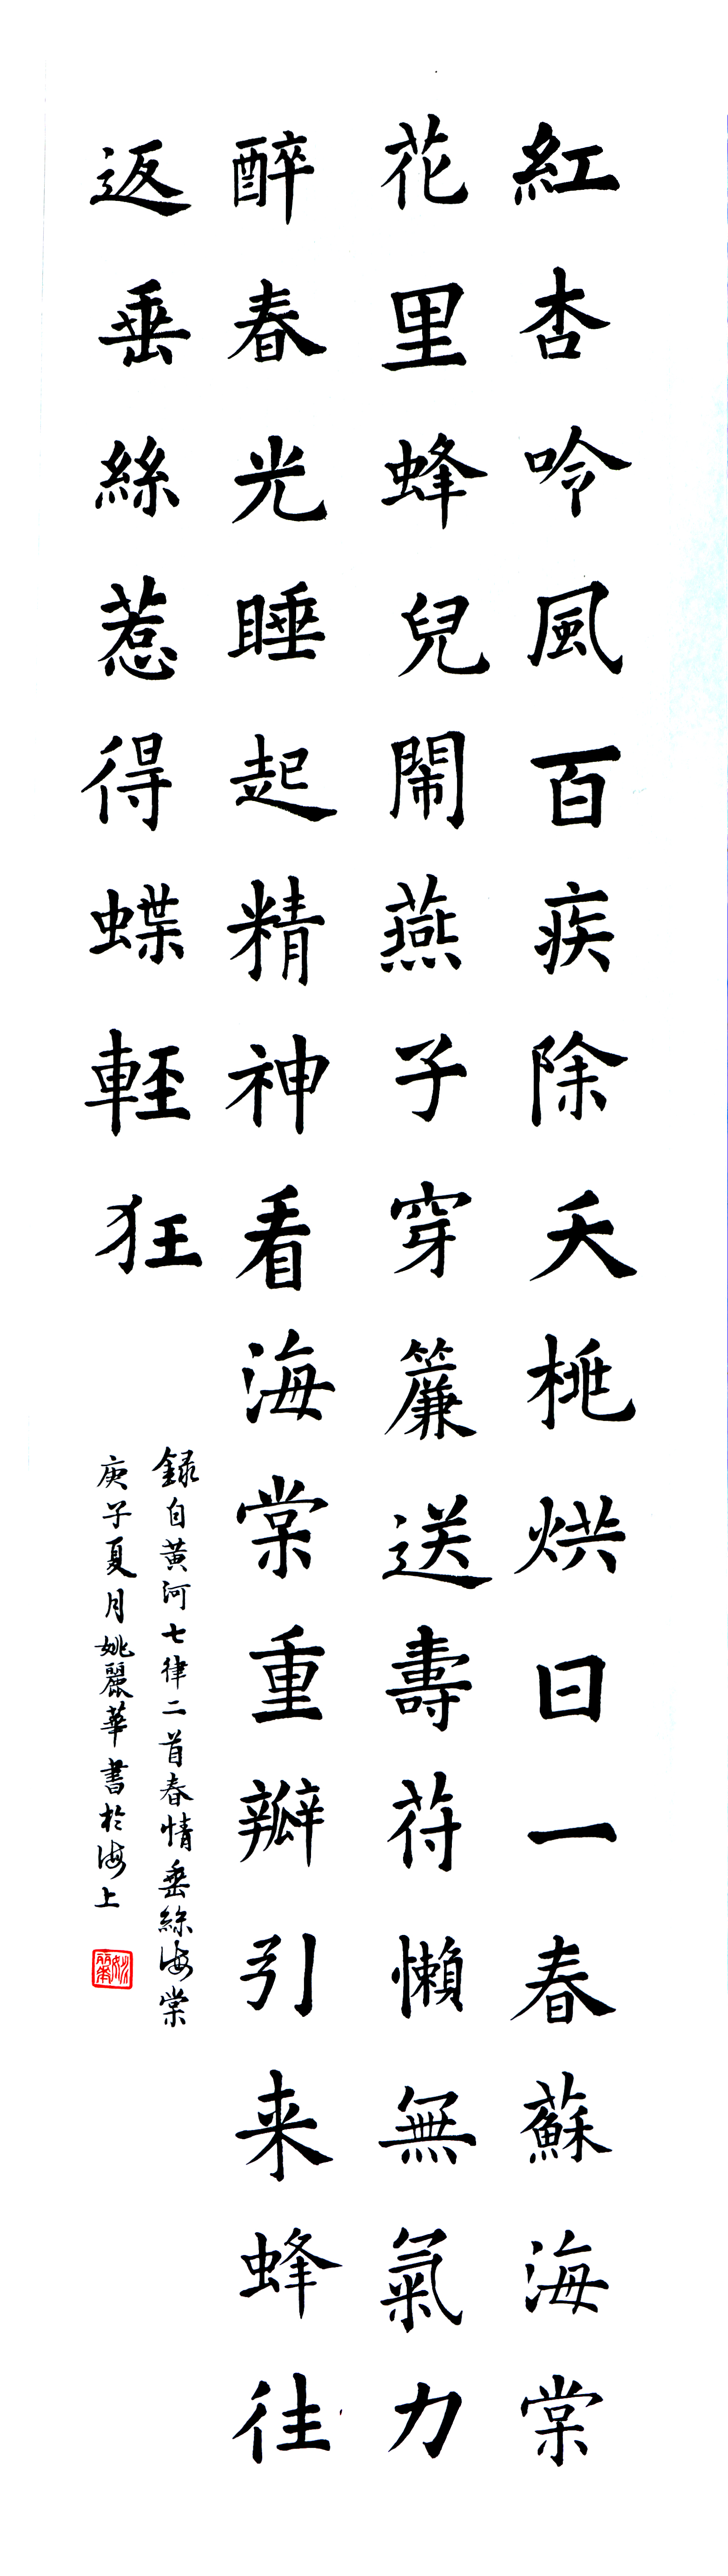 紅杏吟風百疾除夭桃烘日一春蘇海棠
花里蜂兒鬧燕子穿簾送壽符懶無氣力
醉春光睡起精神看海棠重瓣引来蜂往
返垂絲惹得蝶輕狂
録自黄河七律二首春情垂絲海棠
庚子夏月姚麗華書於海上